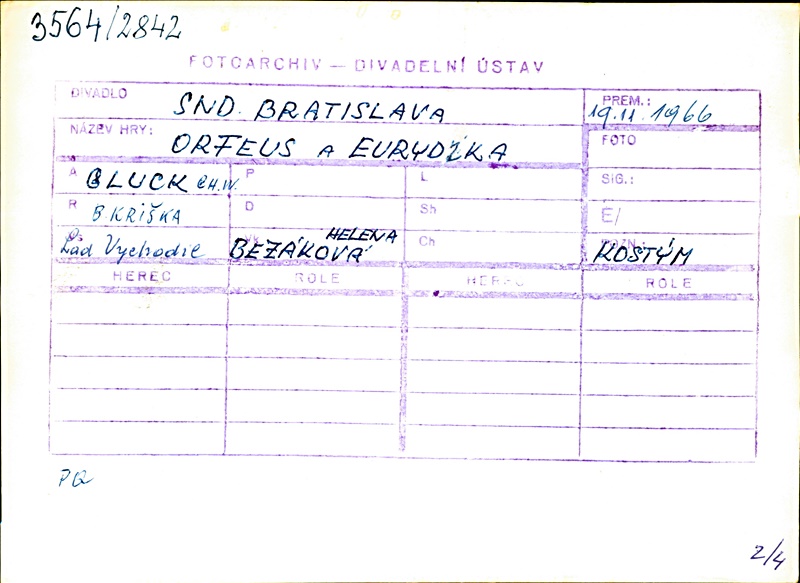 3564/2842
FOTOARCHIV — DIVADELNÍ ÚSTAV
DIVADLO SND. BRATISLAVA PREM.: 19.11.1966
NÁZEV HRY: ORFEUS A EURYDIKA FOTO
A GLUCK CH.W. P L SIG.:
R B. KRIŠKA D Sh É/
Lad Vychodil BEZÁKOVÁ HELENA Ch KOSTÝM
HEREC ROLE HEREC ROLE
PQ
2/4